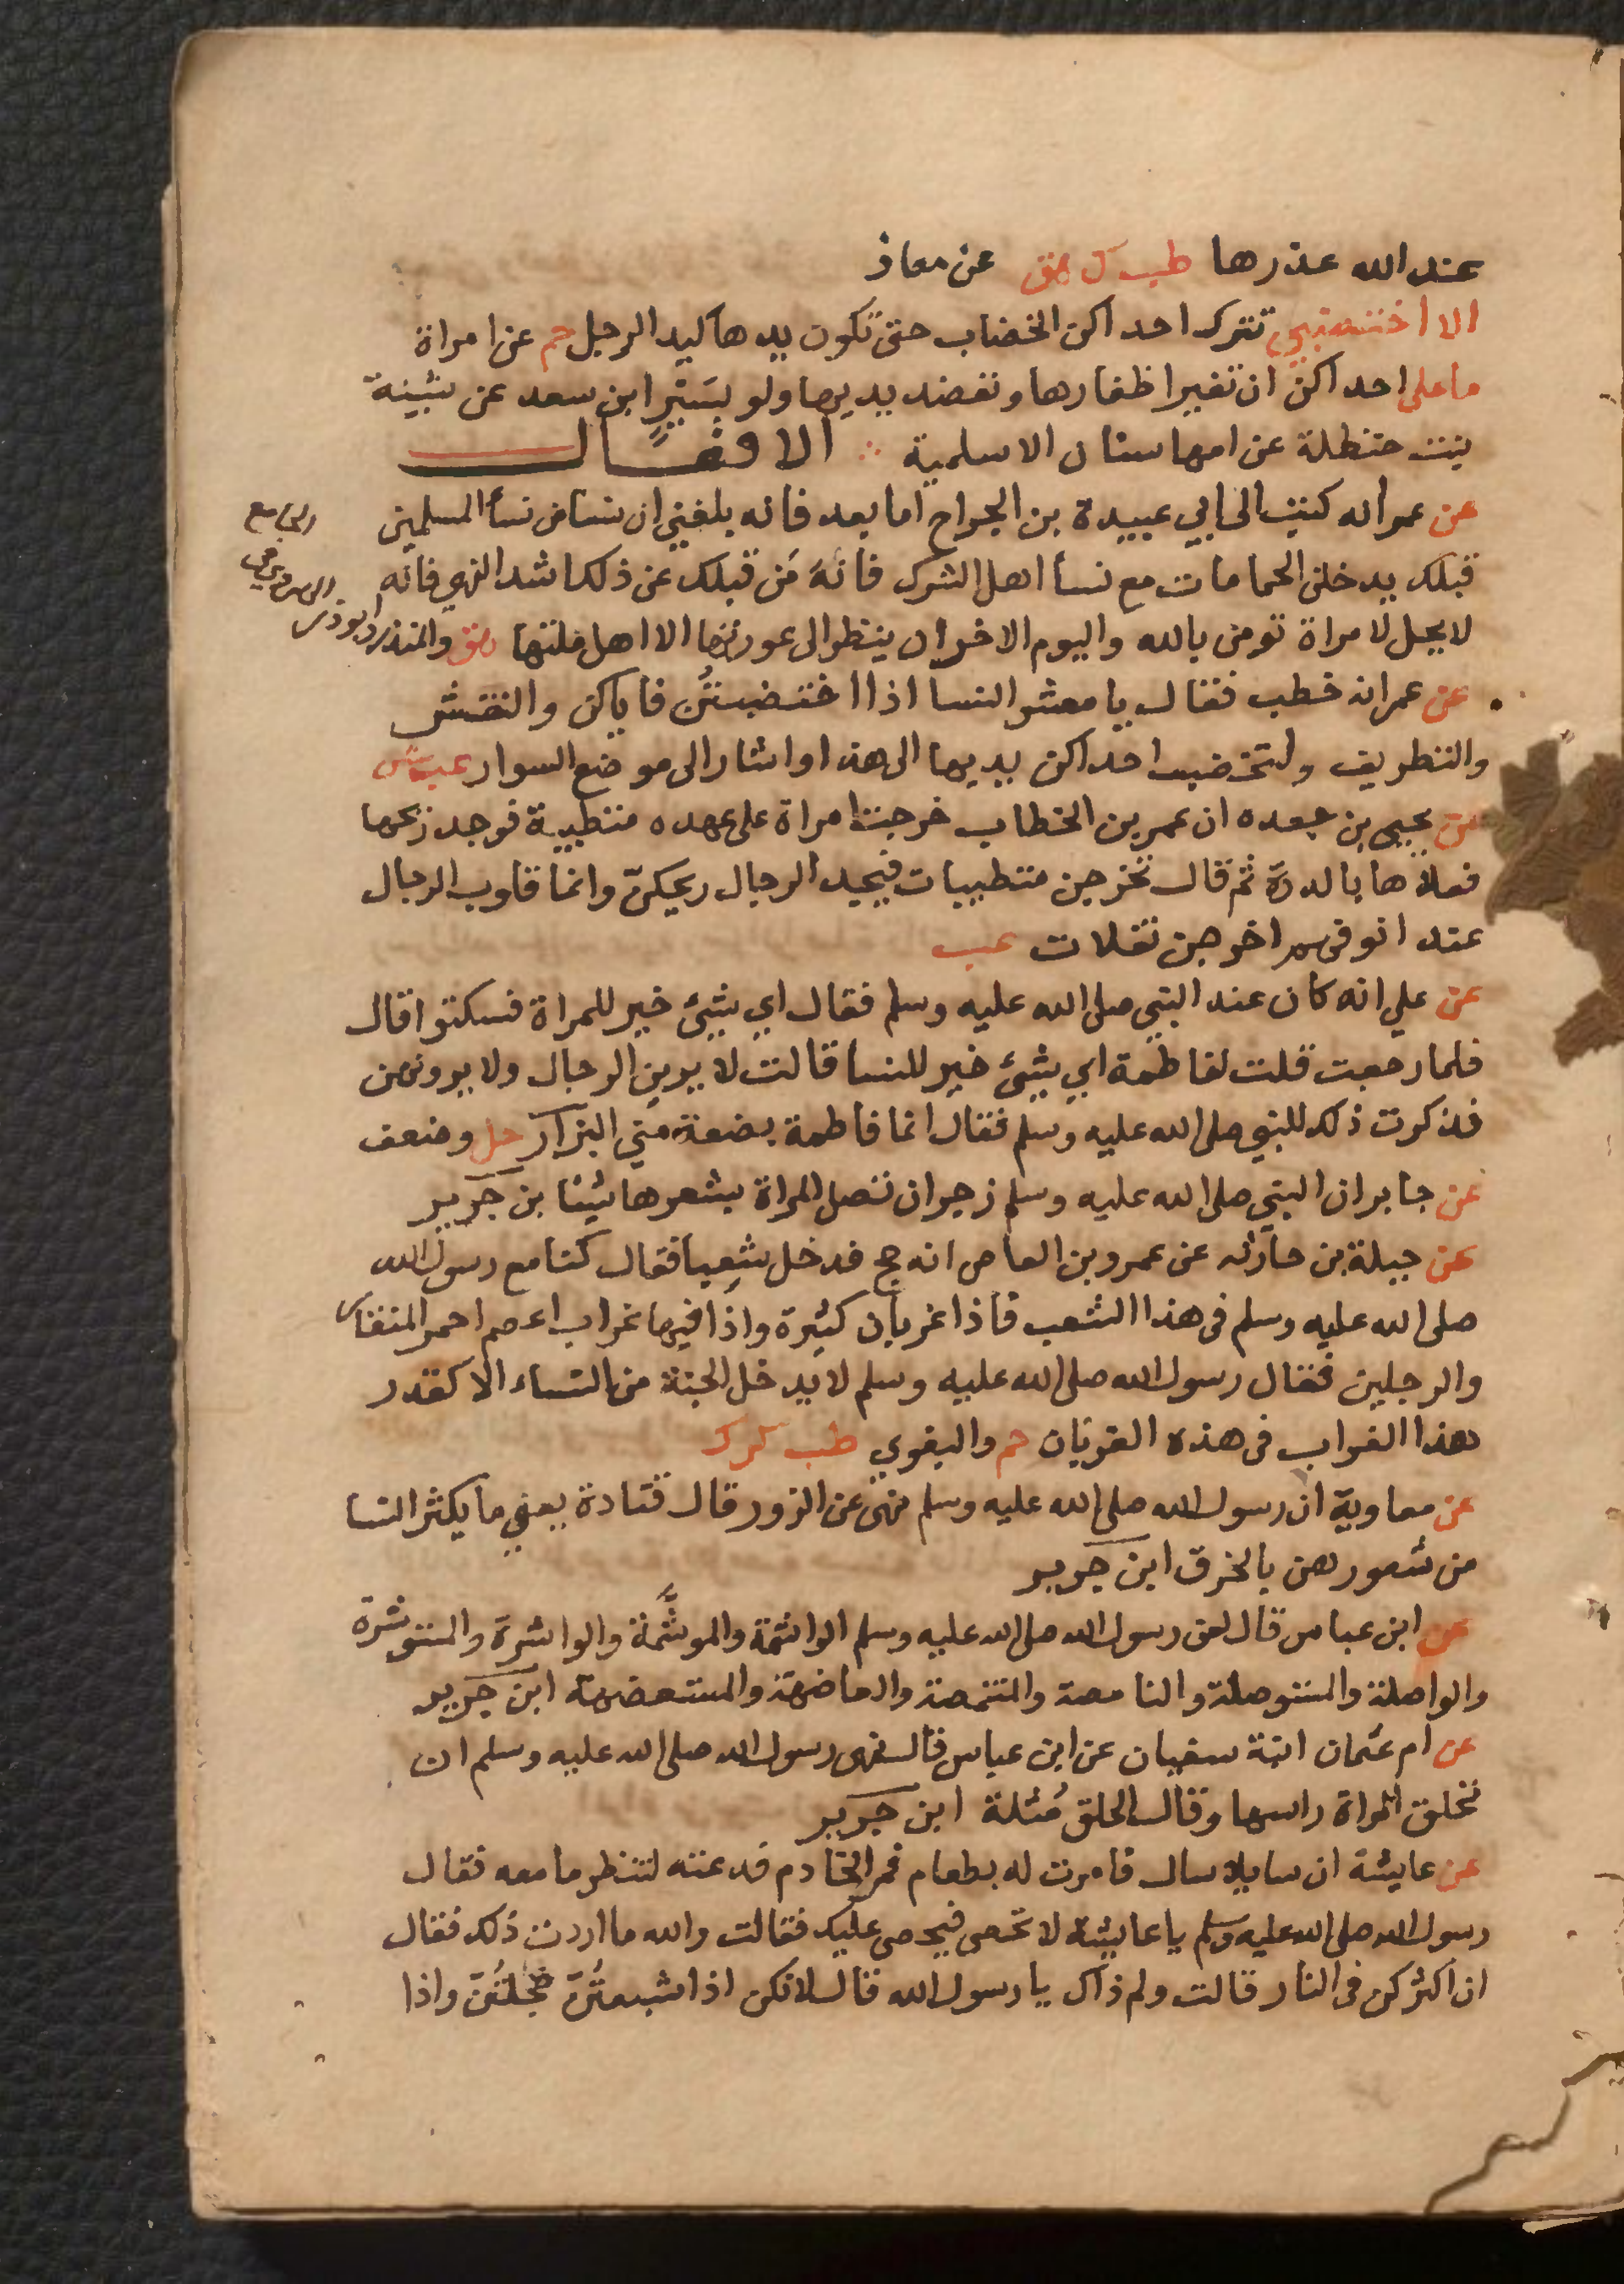 عند الله عذرها طب ك هق عن معاذ
الا اختضبي تترك احداكن الخضاب حتى تكون يدها كيد الرجل حم عن امراة
ما على احداكن ان تغير اظفارها وتعضد يديها ولو بسَيْرٍ ابن سعد عن
بنت حنظلة عن امها سنان الاسلمية ∴ الافعال
عن عمر انه كتب الى ابي عبيدة بن الجراح اما بعد فانه بلغني ان نسا من نسأ المسلمين
قبلك يدخلن الحمامات مع نسأ اهل الشرك فانه مَن قبلك عن ذلك اشد النهي فانه
لا يحل لامراة تومن بالله واليوم الاخر ان ينظر الى عورتها الا اهل ملتها هق وابن المنذر وابو ذر
الهروي في
الجامع
عن عمر انه خطب فقال يا معشر النسا اذا اختضبتُن فاياكن والنقش
والتطريف ولتخضب احداكن يديها الى هذا واشار الى موضع السوار عب ش
عن يحيى بن جعده ان عمر بن الخطاب خرجت امراة على عهده متطيبة فوجد ريحها
فعلاها بالدرة ثم قال تخرجن متطيبات فيجد الرجال ريحكنّ وانما قلوب الرجال
عند انوفهم اخرجن تفلات عب
عن علي انه كان عند النبي صلى الله عليه وسلم فقال اي شيئ خير للمراة فسكتوا قال
فلما رجعت قلت لفاطمة اي شيئ خير للنسا قالت لا يرين الرجال ولا يرونهن
فذكرت ذلك للنبي صلى الله عليه وسلم فقال انما فاطمة بضعة مني البزار حل وضعف
عن جابر ان النبي صلى الله عليه وسلم زجر ان تصل المراة بشعرها شيئا بن جرير
عن جبلة بن حارثه عن عمرو بن العاص انه حج فدخل شِعبا فقال كنا مع رسول الله
صلى الله عليه وسلم فى هذا الشعب فاذا غربان كثيرة واذا فيها غراب اعصم احمر المنقار
والرجلين فقال رسول الله صلى الله عليه وسلم لا يدخل الجنة من النساء الا كقدر
هذا الغراب فى هذه الغربان حم والبغوي طب ك كر
عن معاوية ان رسول الله صلى الله عليه وسلم نهى عن الزور قال قتادة يعني ما يكثر النسا
من شعورهن بالخرق ابن جرير
عن ابن عباس قال لعن رسول الله صلى الله عليه وسلم الواشمة والموشَّمة والواشرة والمستوشرة
والواصلة والمستوصلة والنامصة والمتنمصة والعاضهة والمستعضهة ابن جرير
عن ام عثمان ابنة سفيان عن ابن عباس قال نهى رسول الله صلى الله عليه وسلم ان
تحلق المراة راسها وقال الحلق مُثلة ابن جرير
عن عايشة ان سايلا سال فامرت له بطعام فمر الخادم فدعته لتنظر ما معه فقال
رسول الله صلى الله عليه وسلم يا عايشة لا تحصى فيحصى عليك فقالت والله ما اردت ذلك فقال
ان اكثركن فى النار قالت ولم ذاك يا رسول الله قال لانكن اذا شبعتُنّ خجلتُنّ واذا